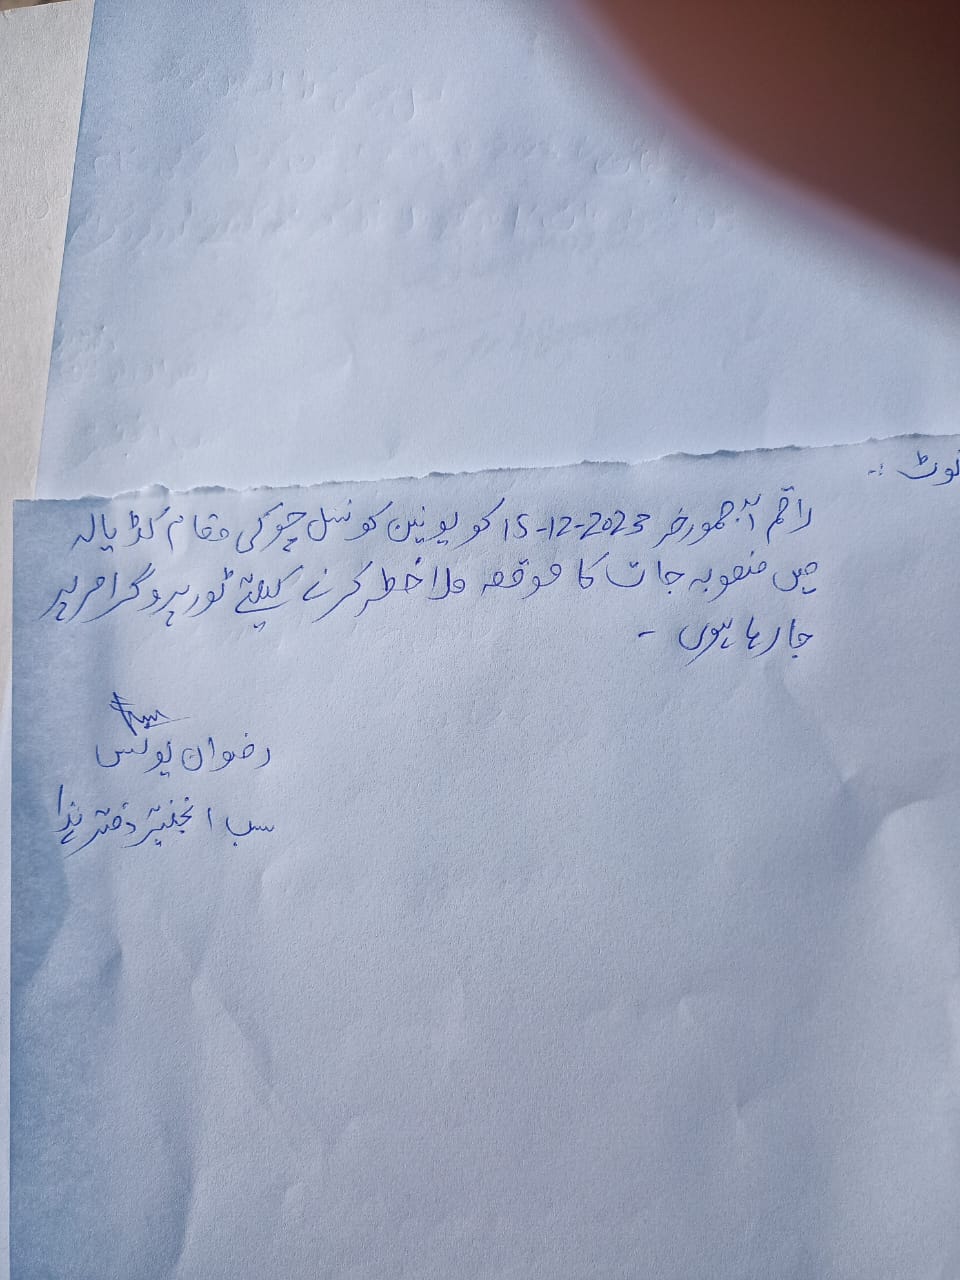 نوٹ :-
راقم آج مورخہ 15-12-2023 کو یونین کونسل چوکی مقام کڈیالہ
میں منصوبہ جات کا موقعہ ملاخطہ کرنے کیلئے ٹور پروگرام پر
جا رہا ہوں -
رضوان یونس
سب انجنیئر دفتر ہذا